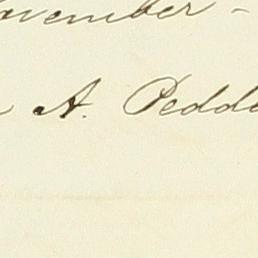 ovember -
A. Pedd